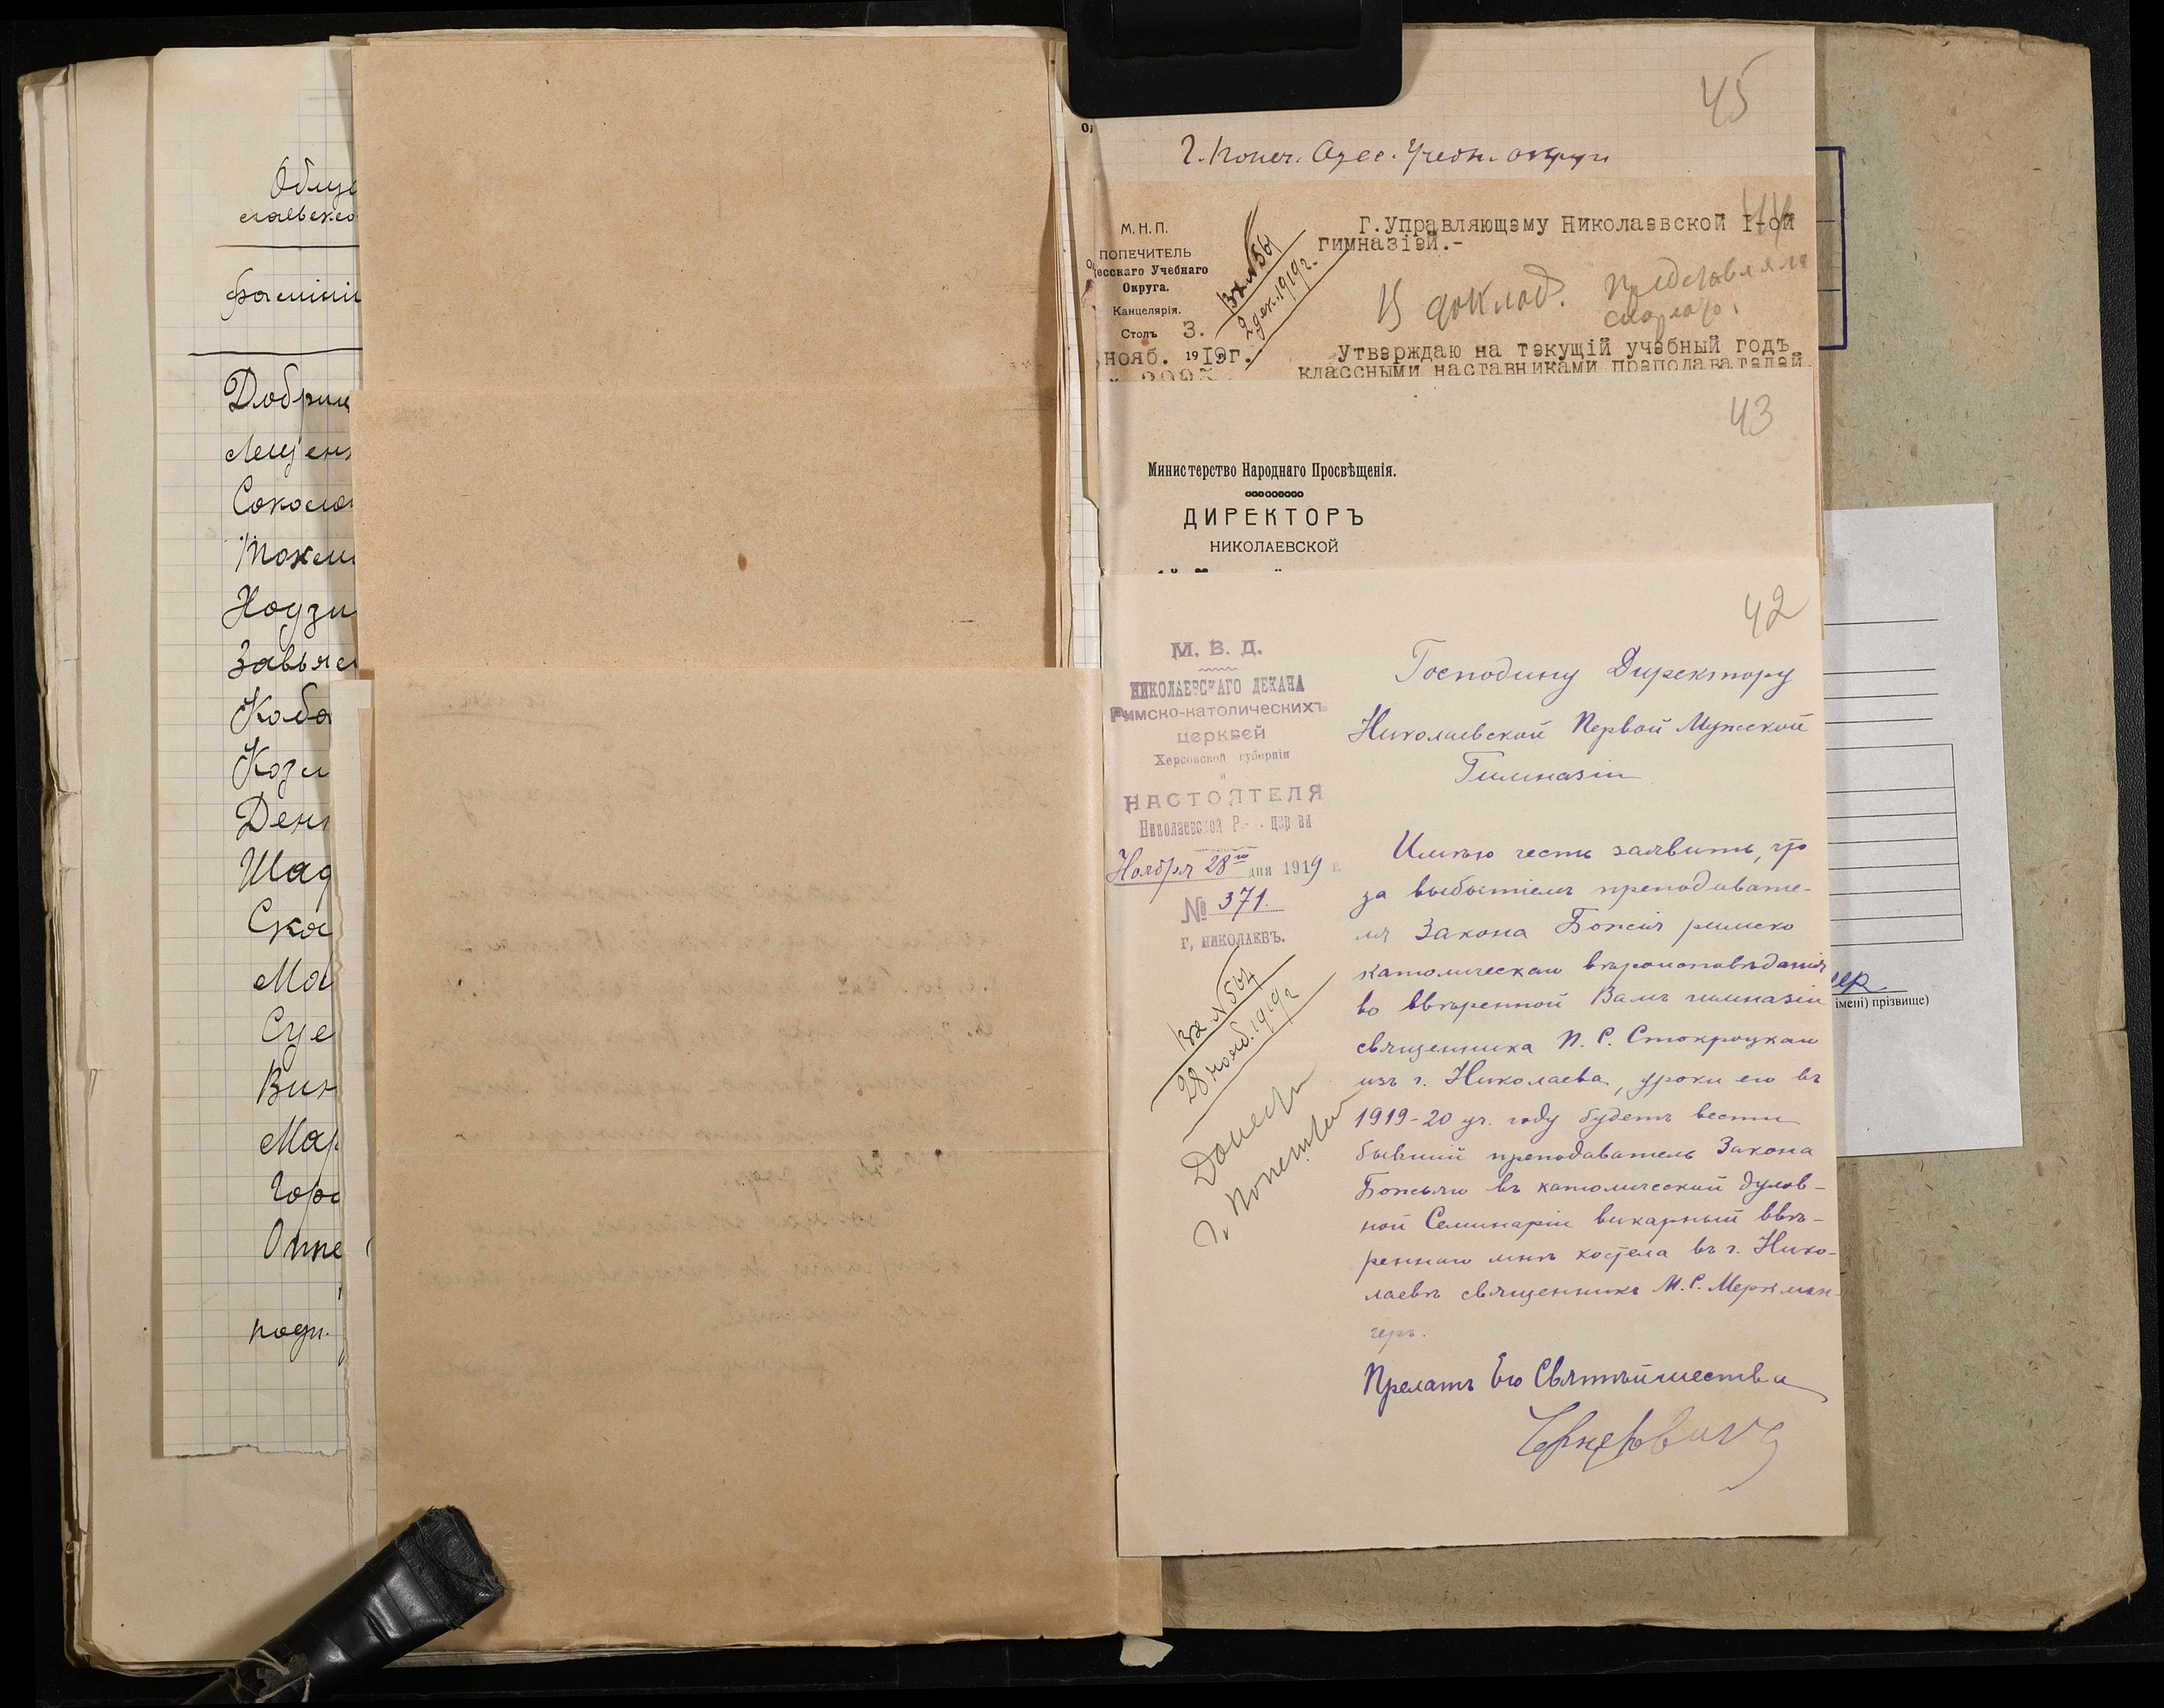 Облу
славско
фамилі
Добри
Лещен
Соколо
Токм
Заввя
Каба
Козл
Ден
Шад
Ска
Мат
Сце
Вин
Мар
Горо
Оппе
подп.
45
Г. Попеч. Одес. Учебн. округа
М. Н. П.
ПОПЕЧИТЕЛЬ
десскаго Учебнаго
Округа.
Канцелярія.
Столъ 3.
нояб. 1919г.
Вх. № 561
2 дек. 1919 г.
44
Г.Управляющему Николаевской I-ой
гимназіей.-
К доклад. Представляла
Утверждаю на текущій учебный годъ
классными наставниками преподавателей
43
Министерство Народнаго Просвѣщенія.
ДИРЕКТОРЪ
НИКОЛАЕВСКОЙ
42
М. В. Д.
НИКОЛАЕВСКАГО ДЕКАНА
Римско-католическихъ
церквей
Херсонской губерніи
и
НАСТОЯТЕЛЯ
Николаевской Р.-. цер ви
Ноября 28го дня 1919 г.
№ 371.
Г, НИКОЛАЕВЪ.
Вх № 504
28 нояб. 1919 г
Донести
г. Попечителю
Господину Директору
Николаевской Первой Мужской
Гимназіи
Имѣю честь заявить, что
за выбытіемъ преподавате-
ля Закона Божія римско
католическаго вѣроисповѣданія
во ввѣренной Вамъ гимназіи
священника П. С. Стокроцкаго
изъ г. Николаева, уроки его въ
1919-20 уч. году будетъ вести
бывшій преподаватель Закона
Божьяго въ католической духов-
ной Семинаріи викарный ввѣ-
реннаго мнѣ костела въ г. Нико-
лаевѣ священникъ М. С. Меркмин-
геръ.
Прелатъ Его Святѣйшества
імені) прізвище)